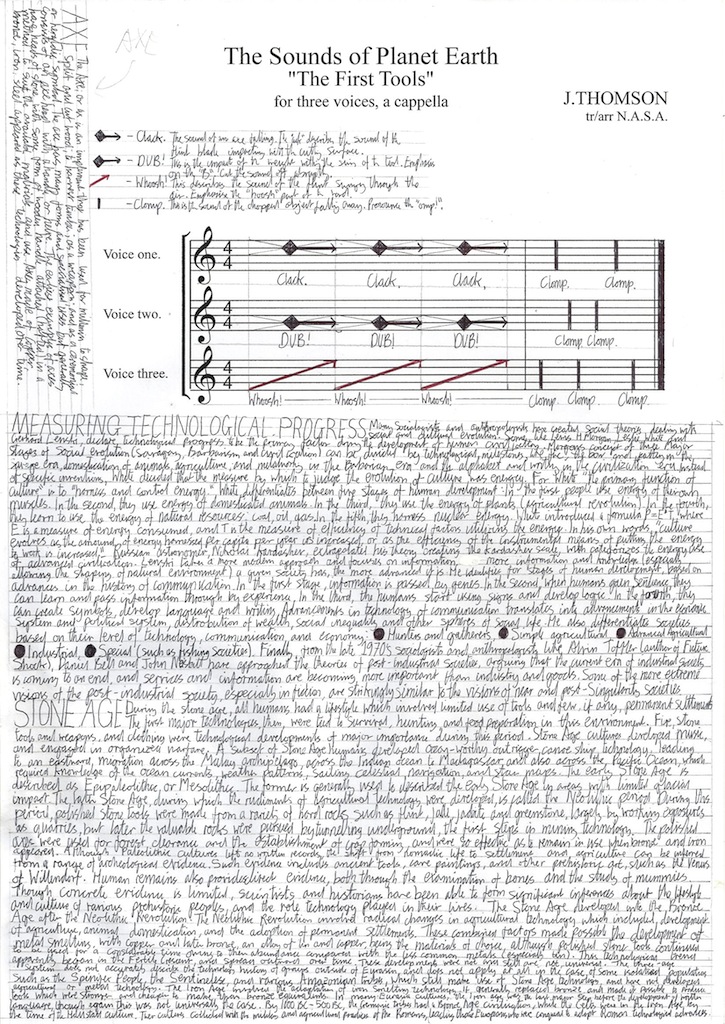 AXE
The Sounds of Planet Earth
"The First Tools"
for three voices, a cappella
J.THOMSON
tr/arr N.A.S.A.
AXE
The Axe, or Ax is an implement that has been used for millenia to shape,
split and cut wood, to harvest timber, as a weapon and as a ceremonial
or heraldic symbol. The axe has many forms and specialised uses but generally
consists of an axe head with a handle, or helve. The earliest examples of axes
have heads of stone with some form of wooden handle attached (hafted) in a
method to suit the available materials and use. Axes made of copper,
bronze, iron, steel appeared as these technologies developed over time.
- Clack. The sound of an axe falling. The "ack" describes the sound of the
flint blade impacting with the cutting surface.
- DUB! This is the impact of the weight within the swing of the tool. Emphasis
on the "B". Cut the sound off abruptly.
- Whoosh! This describes the sound of the flint swinging through the
air. Emphasise the "hoosh" part of the word.
- Clomp. This is the sound of the chopped object falling away. Pronounce the "omp!".
Voice one.
Clack. Clack. Clack. Clomp. Clomp.
Voice two.
DUB! DUB! DUB! Clomp Clomp.
Voice three.
Whoosh! Whoosh! Whoosh! Clomp. Clomp. Clomp.
MEASURING TECHNOLOGICAL PROGRESS Many sociologists and anthropologists have created social theories dealing with
social and cultural evolution. Some, like Lewis H Morgan, Leslie White and
Gerhard Lenski, declare technological progress to be the primary factor driving the development of human civilization. Morgan's concept of three major
stages of social evolution (savagery, barbarism and civilization) can be divided by technological milestones, like fire, the bow and pottery in the
savage era, domestication of animals, agriculture, and metalworking in the barbarian era and the alphabet and writing in the civilization era. Instead
of specific inventions, White decided that the measure by which to judge the evolution of culture was energy. For White "the primary function of
culture" is to "harness and control energy." White differentiates between five stages of human development: In the first, people use energy of their own
muscles. In the second, they use energy of domesticated animals. In the third, they use the energy of plants (agricultural revolution). In the fourth,
they learn to use the energy of natural resources: coal, oil, gas. In the fifth, they harness nuclear energy. White introduced a formula P=E*T, where
E is a measure of energy consumed, and T is the measure of efficiency of technical factors utilizing the energy. In his own words, "culture
evolves as the amount of energy harnessed per capita per year is increased, or as the efficiency of the instrumental means of putting the energy
to work is increased". Russian astronomer, Nikolai Kardashev, extrapolates his theory creating the Kardashev scale, which categorizes the energy use
of advanced civilization. Lenski takes a more modern approach and focuses on information. more information and knowledge (especially
allowing the shaping of natural environment) a given society has, the more advanced it is. He identifies four stages of human development, based on
advances in the history of communication. In the first stage, information is passed by genes. In the second, when humans gain sentience, they
can learn and pass information through by experience. In the third, the humans start using signs and develop logic. In the fourth, they
can create symbols, develop language and writing. Advancements in the technology of communication translates into advancements in the economic
system and political system, distribution of wealth, social inequality and other spheres of social life. He also differentiates societies
based on their level of technology, communication and economy: Hunters and gatherers, Simple agricultural, Advanced Agricultural
Industrial, Special (such as fishing societies). Finally, from the late 1970s sociologists and anthropologists like Alvin Toffler (author of Future
Shock), Daniel Bell and John Naisbitt have approached the theories of post-industrial societies, arguing that the current era of industrial society
is coming to an end, and services and information are becoming more important than industry and goods. Some of the more extreme
visions of the post-industrial society, especially in fiction, are strikingly similar to the visions of near and post-Singularity societies.
STONE AGE During the stone age, all humans had a lifestyle which involved limited use of tools and few, if any, permanent settlements
The first major technologies, then, were tied to survival, hunting, and food preparation in this environment. Fire, stone
tools and weapons, and clothing were technological developments of major importance during this period. Stone Age cultures developed music,
and engaged in organized warfare. A subset of Stone Age humans developed ocean-worthy outrigger canoe ship technology, leading
to an eastward, migration across the Malay archipelago, across the Indian ocean to Madagascar and also across the Pacific Ocean, which
required knowledge of the ocean currents, weather patterns, sailing, celestial navigation, and star maps. The early Stone Age is
described as Epipaleolithic or Mesolithic. The former is generally used to describe the early Stone Age in areas with limited glacial
impact. The later Stone Age, during which the rudiments of agricultural technology were developed, is called the Neolithic period. During this
period, polished stone tools were made from a variety of hard rocks such as flint, jade, jadeite and greenstone, largely by working exposures
as quarries, but later the valuable rocks were pursued by tunneling underground, the first steps in mining technology. The polished
axes were used for forest clearance and the establishment of crop farming, and were so effective as to remain in use when bronze and iron
appeared. Although Paleolithic cultures left no written records, the shift from nomadic life to settlement and agriculture can be inferred
from a range of archeological evidence. Such evidence includes ancient tools, cave paintings, and other prehistoric art, such as the Venus
of Willendorf. Human remains also provide direct evidence, both through the examination of bones, and the study of mummies.
Though concrete evidence is limited, scientists and historians have been able to form significant inferences about the lifestyle
and culture of various prehistoric peoples, and the role technology played in their lives. The Stone Age developed into the Bronze
Age after the Neolithic Revolution. The Neolithic Revolution involved radical changes in agricultural technology which included, development
of agriculture, animal domestication, and the adoption of permanent settlements. These combined factors made possible the development of
metal smelting, with copper and later bronze, an alloy of tin and copper, being the materials of choice, although polished stone tools continued
to be used for a considerable time owing to their abundance compared with the less common metals (especially tin). This technological trend
apparently began in the Fertile Crescent, and spread outward over time. These developments were not and still are not universal. The three-age
system does not accurately describe the technology history of groups outside of Eurasia, and does not apply at all in the case of some isolated populations
such as the Spinifex People, the Sentinelese, and various Amazonian tribes, which still make use of Stone Age technology, and have not developed
agricultural or metal technology. The Iron Age involved the adoption of iron smelting technology. It generally replaced bronze and made it possible to produce
tools which were stronger and cheaper to make than bronze equivalents. In many Eurasian cultures, the Iron Age was the last major step before the development of written
language, though again this was not universally the case.
the time of the Hallstatt culture. Their cultures collided with the military and agricultural practices of the Romans, leading those Europeans who were conquered to adopt Roman technological advances.